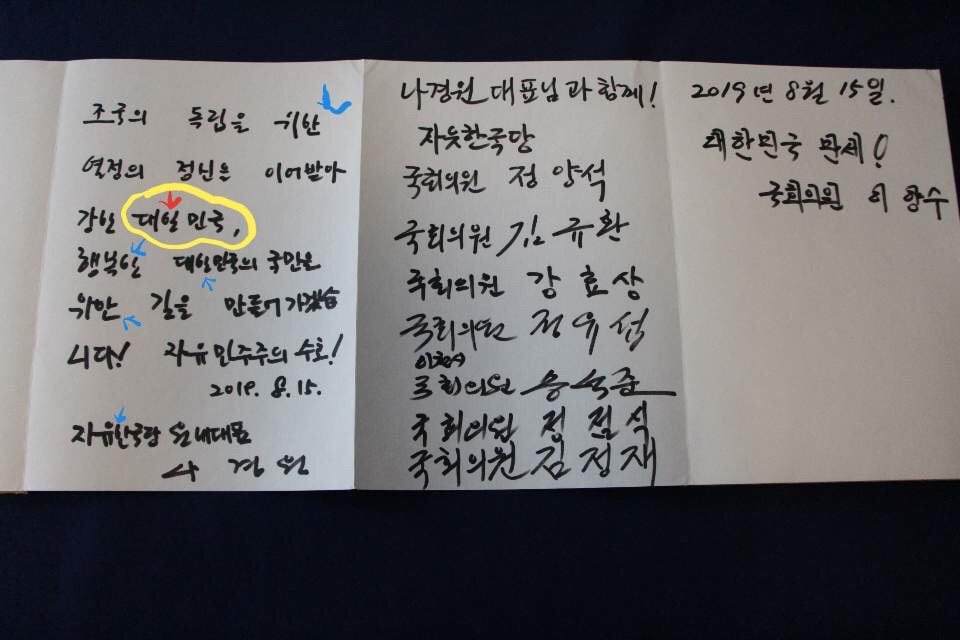 조국의 독립을 위한
열정의 정신을 이어받아
강한 대한민국,
행복한 대한민국의 국민을
위한 길을 만들어 가겠습
니다! 자유민주주의 수호!
2019. 8. 15.
자유한국당 원내대표
나 경 원
나경원 대표님과 함께!
자유한국당
국회의원 정 양 석
국회의원 김 규 환
국회의원 강 효 상
국회의원 정 유 섭
이천시
국회의원 송 석 준
국회의원 정 점 식
국회의원 김 정 재
2019년 8월 15일.
대한민국 만세!
국회의원 이 양 수